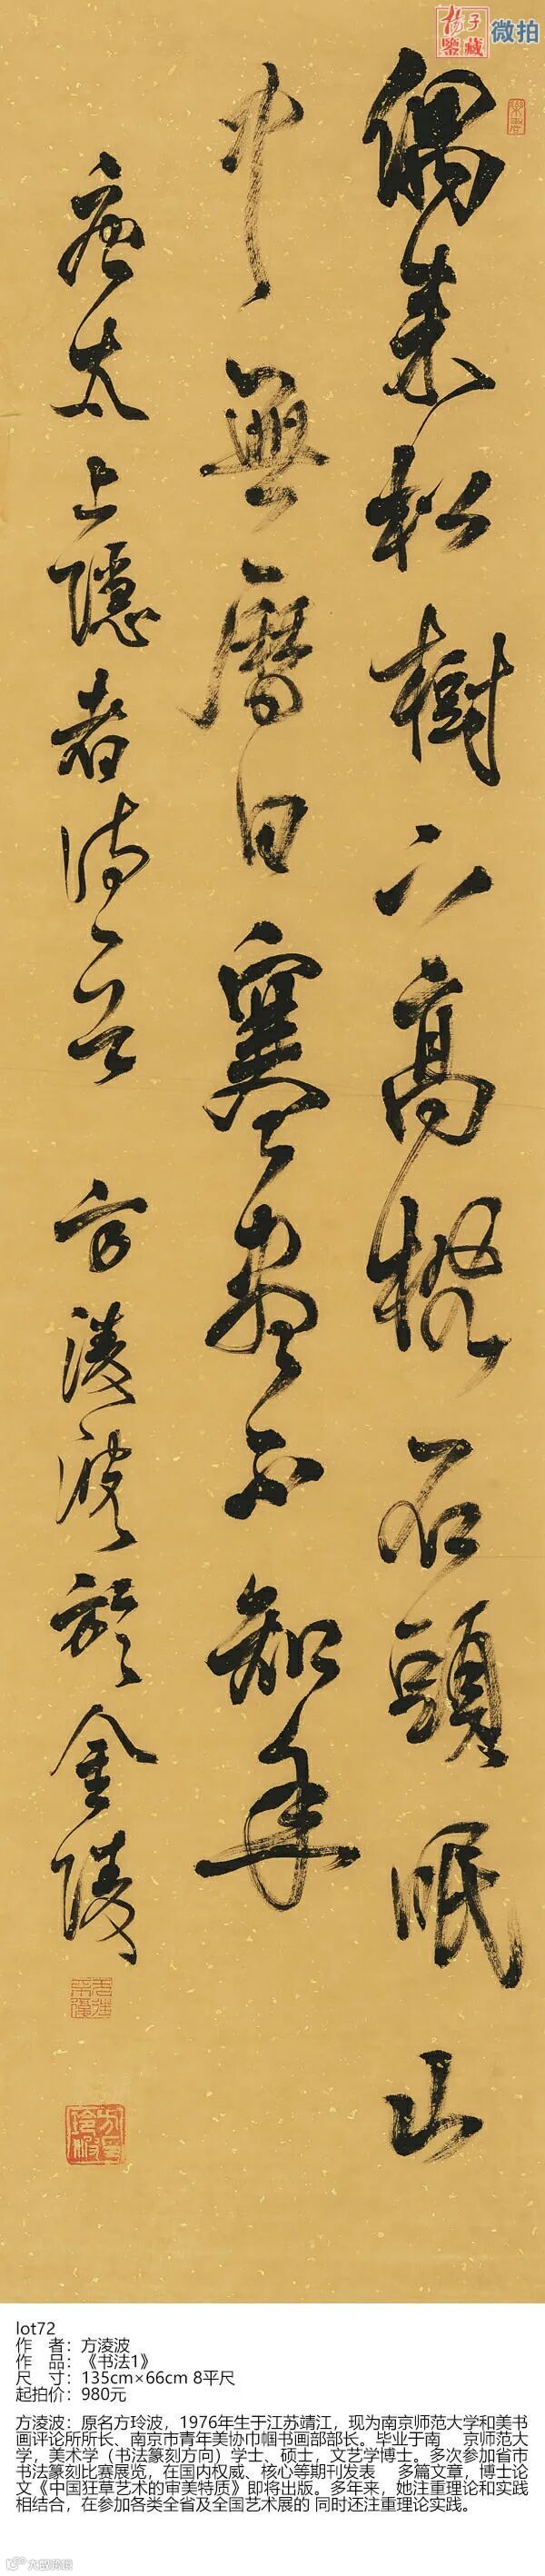 杨子
鉴藏
微拍
偶来松樹下高枕石頭眠山
中無曆日寒盡不知年
唐太上隱者诗一首 方淩波於金陵
lot72
作 者：方淩波
作 品：《书法1》
尺 寸：135cm×66cm 8平尺
起拍价：980元
方淩波：原名方玲波，1976年生于江苏靖江，现为南京师范大学和美书
画评论所所长、南京市青年美协巾帼书画部部长。毕业于南 京师范大
学，美术学（书法篆刻方向）学士、硕士，文艺学博士。多次参加省市
书法篆刻比赛展览，在国内权威、核心等期刊发表 多篇文章，博士论
文《中国狂草艺术的审美特质》即将出版。多年来，她注重理论和实践
相结合，在参加各类全省及全国艺术展的 同时还注重理论实践。